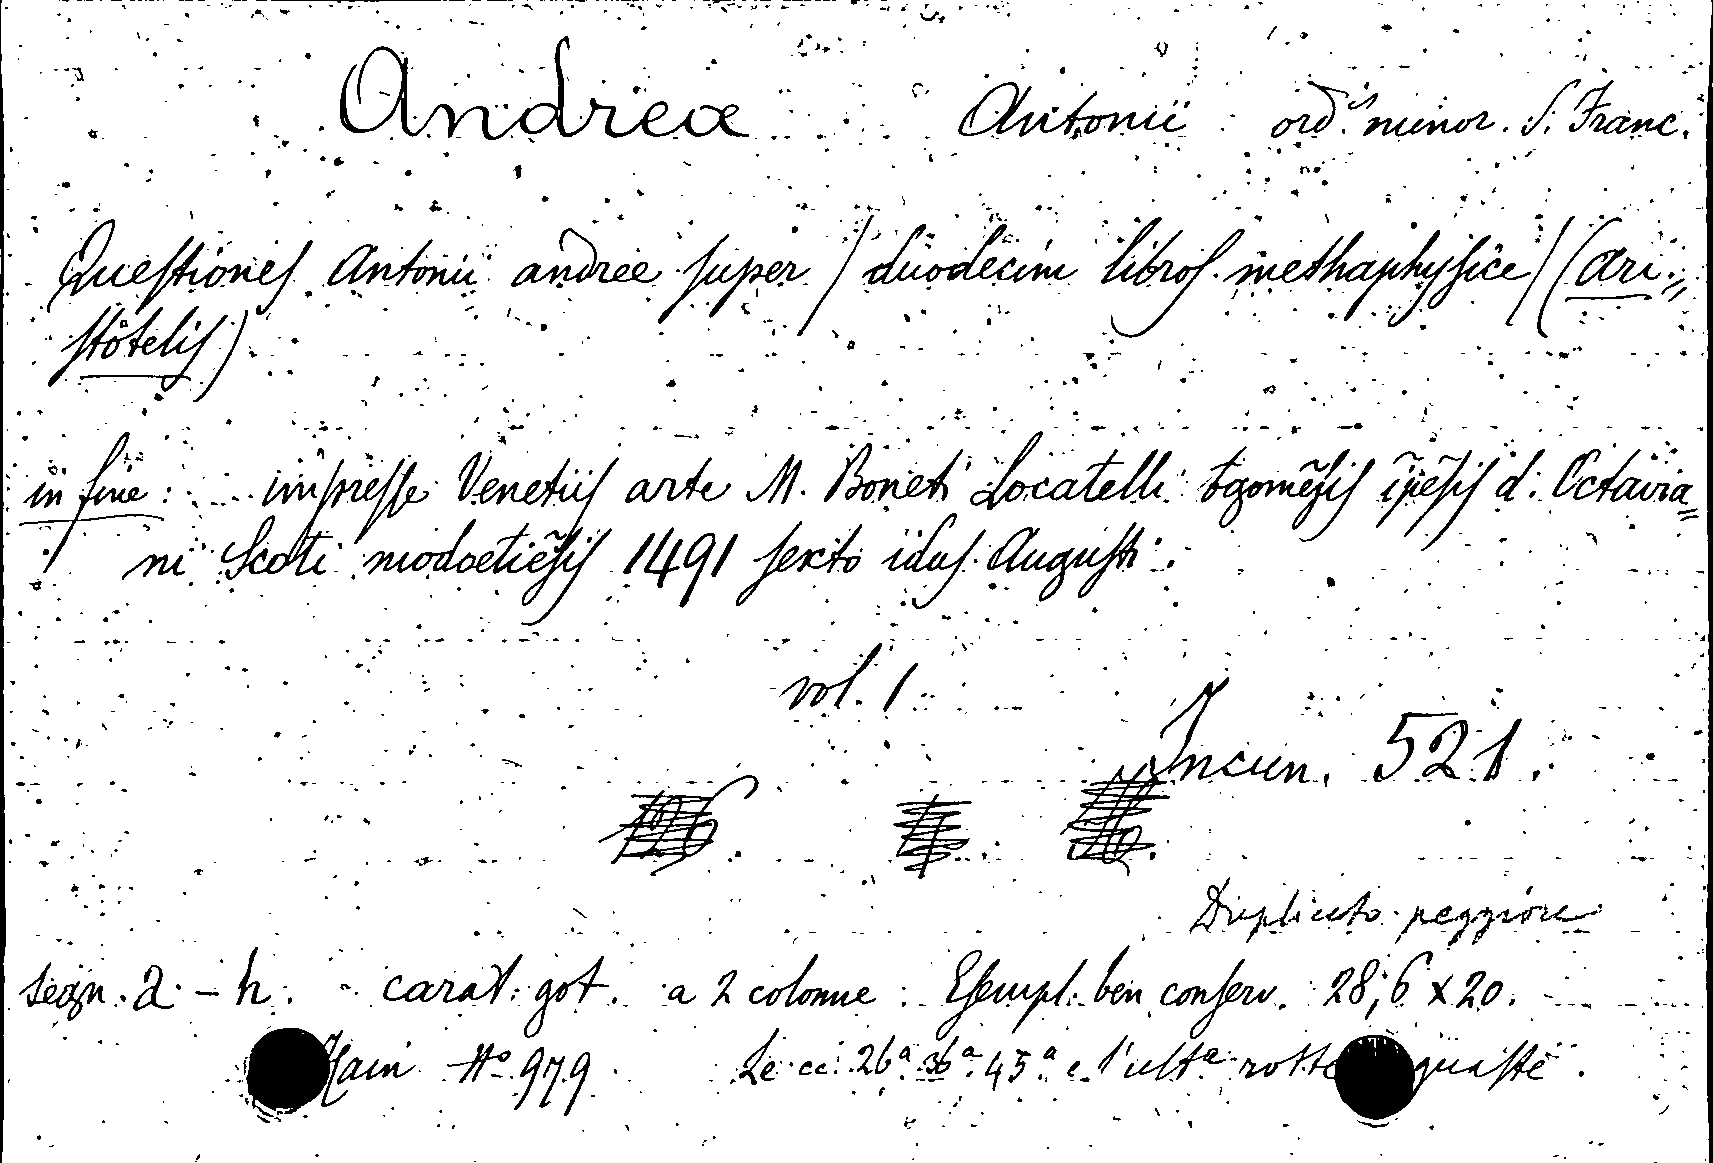 Andreæ Antonii ord.is minor. S. Franc.
Queſtioneſ Antonii andree ſuper / duodecim libroſ methaphyſice / (Ari=
ſtoteliſ)
in fine: impreſſe Venetiiſ arte M. Boneti Locatelli b̄gomēſiſ īpēſiſ d. Octavia=
ni Scoti modoetiēſiſ 1491 ſexto iduſ Auguſti.
vol. 1
Incun. 521.
Duplicato peggiore
segn. a - h. carat. got. a 2 colonne. Eſempl. ben conſerv. 28,6 x 20.
Hain N° 979 Le cc. 26ª 36ª 45ª e l'ultª rotte guaſte.